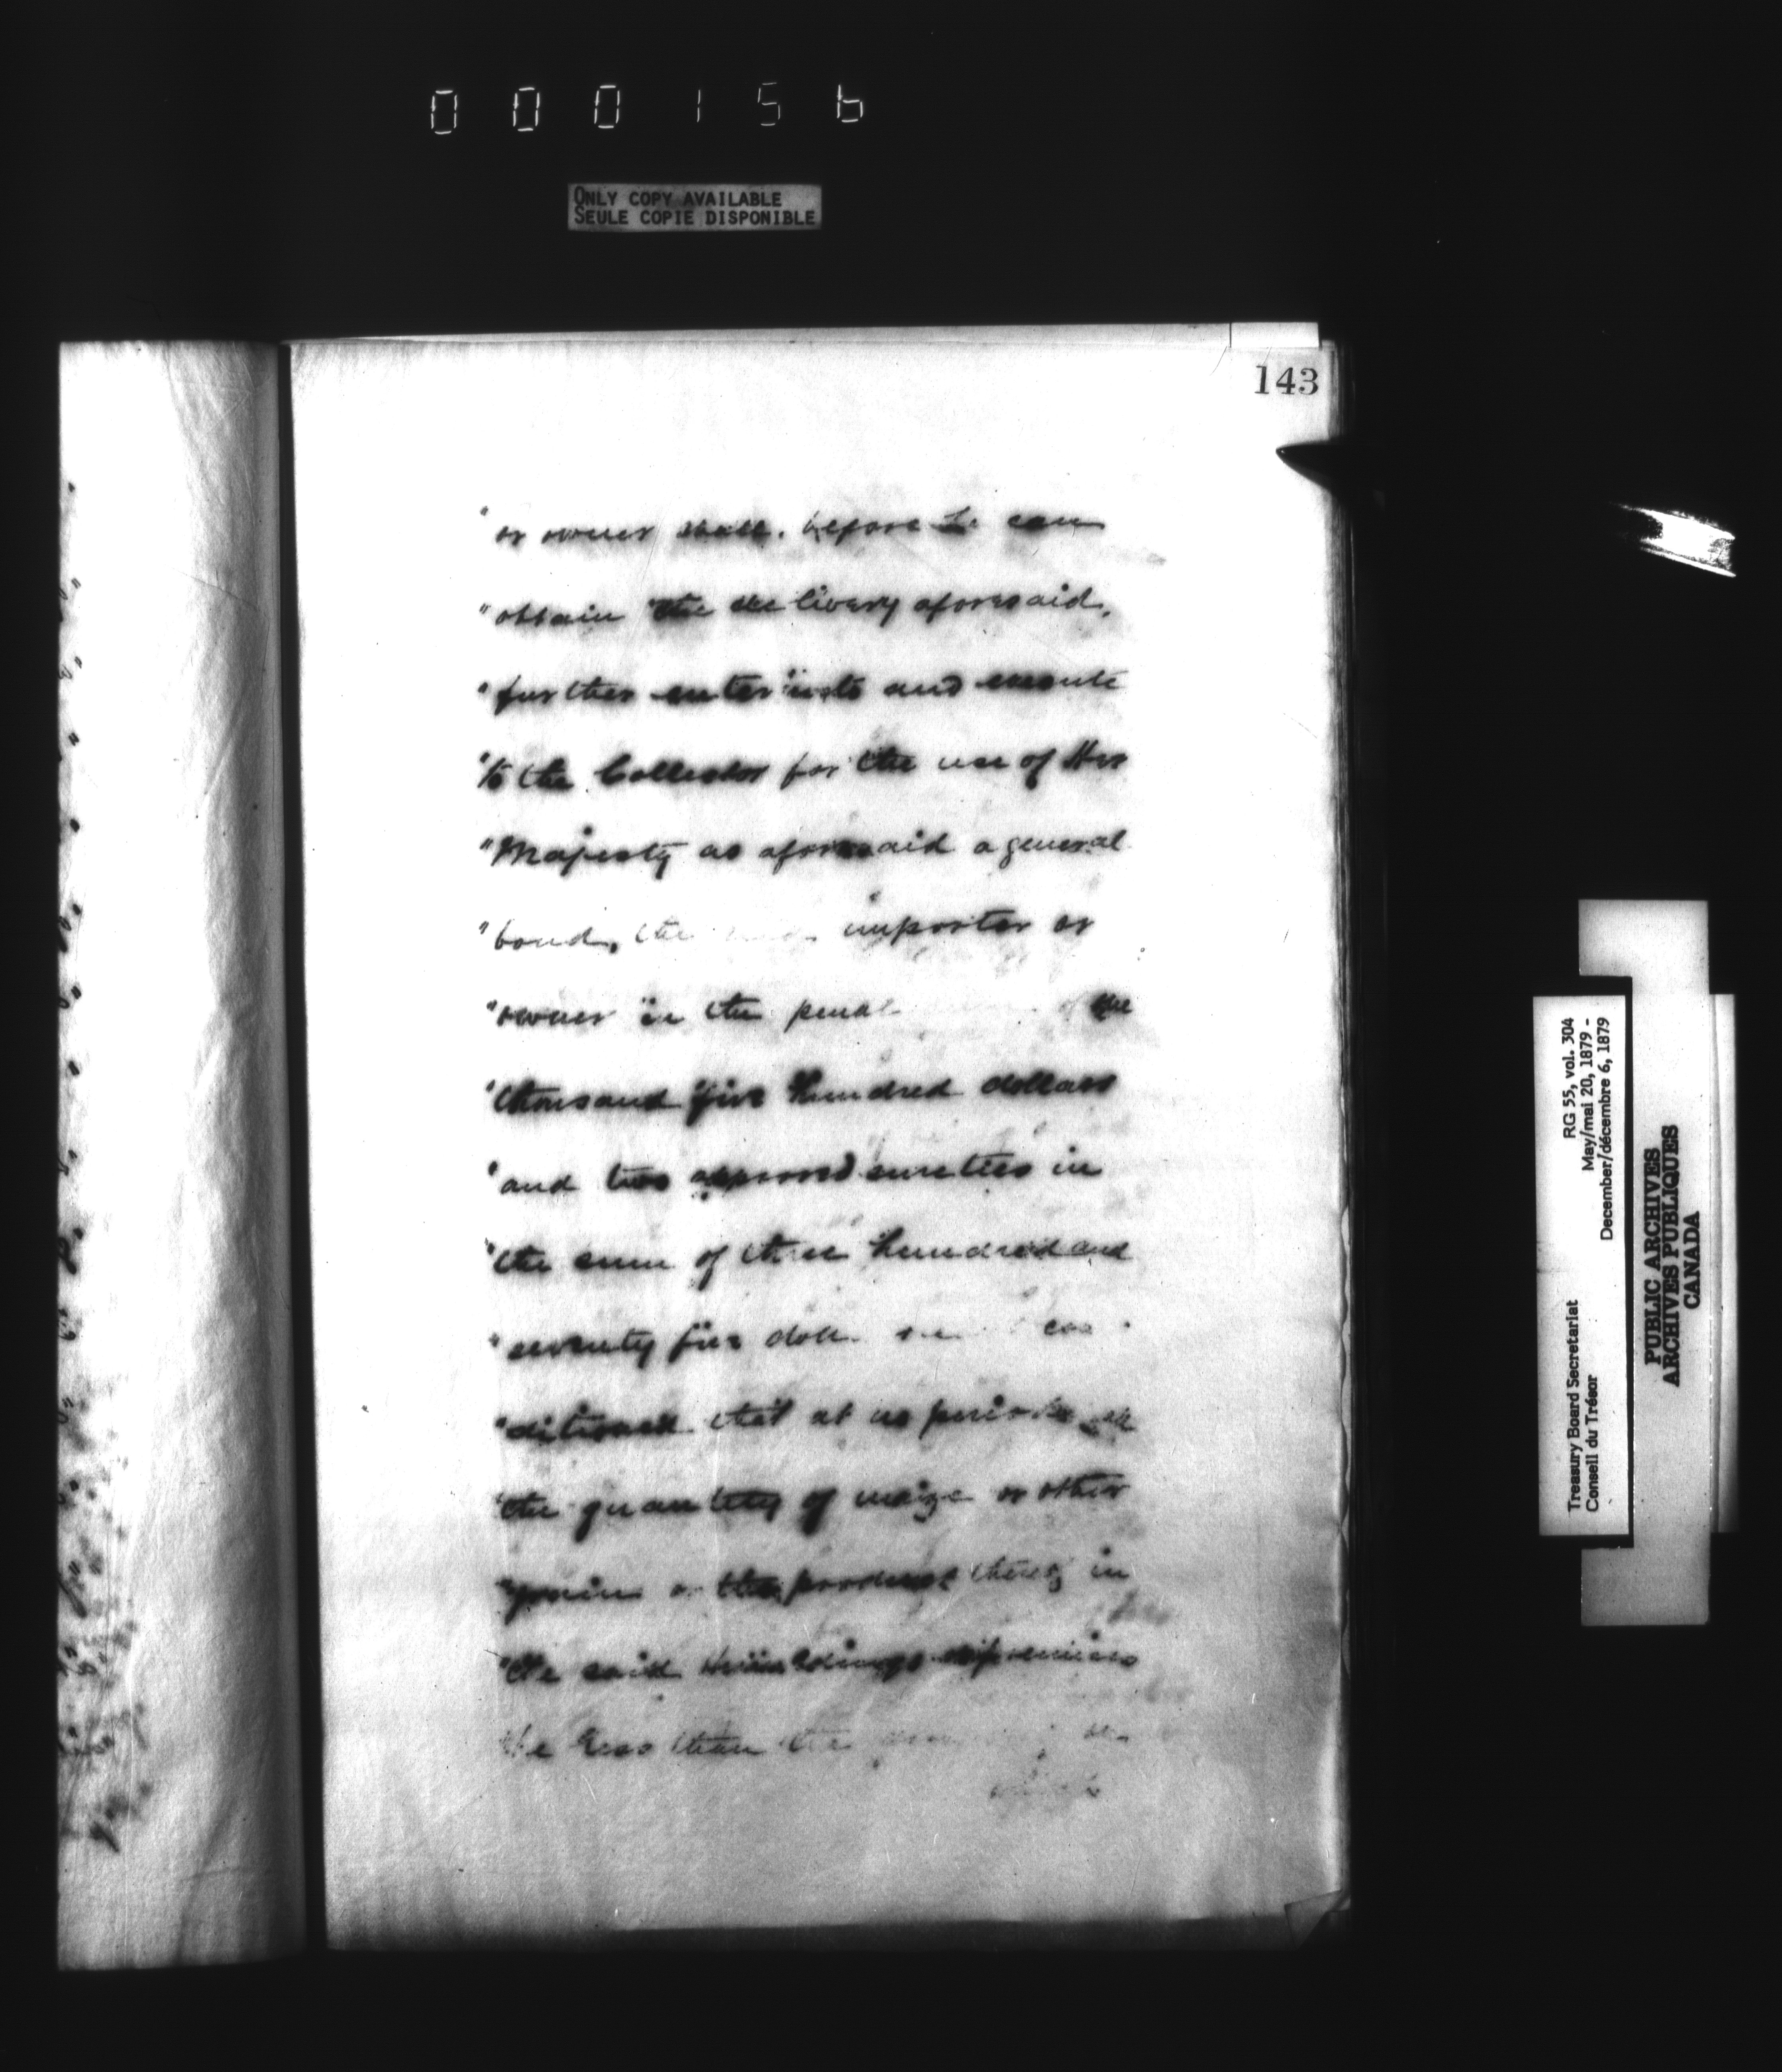 000156
ONLY COPY AVAILABLE
SEULE COPIE DISPONIBLE
143
"or owner shall, before he can
"obtain the delivery aforesaid,
"further enter into and execute
"to the Collector for the use of Her
"Majesty as aforesaid a general
"bond, the said importer or
"owner in the penal of
"thousand five hundred dollars
"and two approved sureties in
"the sum of three hundred and
"seventy five con
"ditioned that at no period
"the quantity of maize or other
"grain or the product thereof in
"the said buildings or premises
be less than the
which
RG 55, vol. 304
May/mai 20, 1879 -
December/décembre 6, 1879
Treasury Board Secretariat
Conseil du Trésor
PUBLIC ARCHIVES
ARCHIVES PUBLIQUES
CANADA